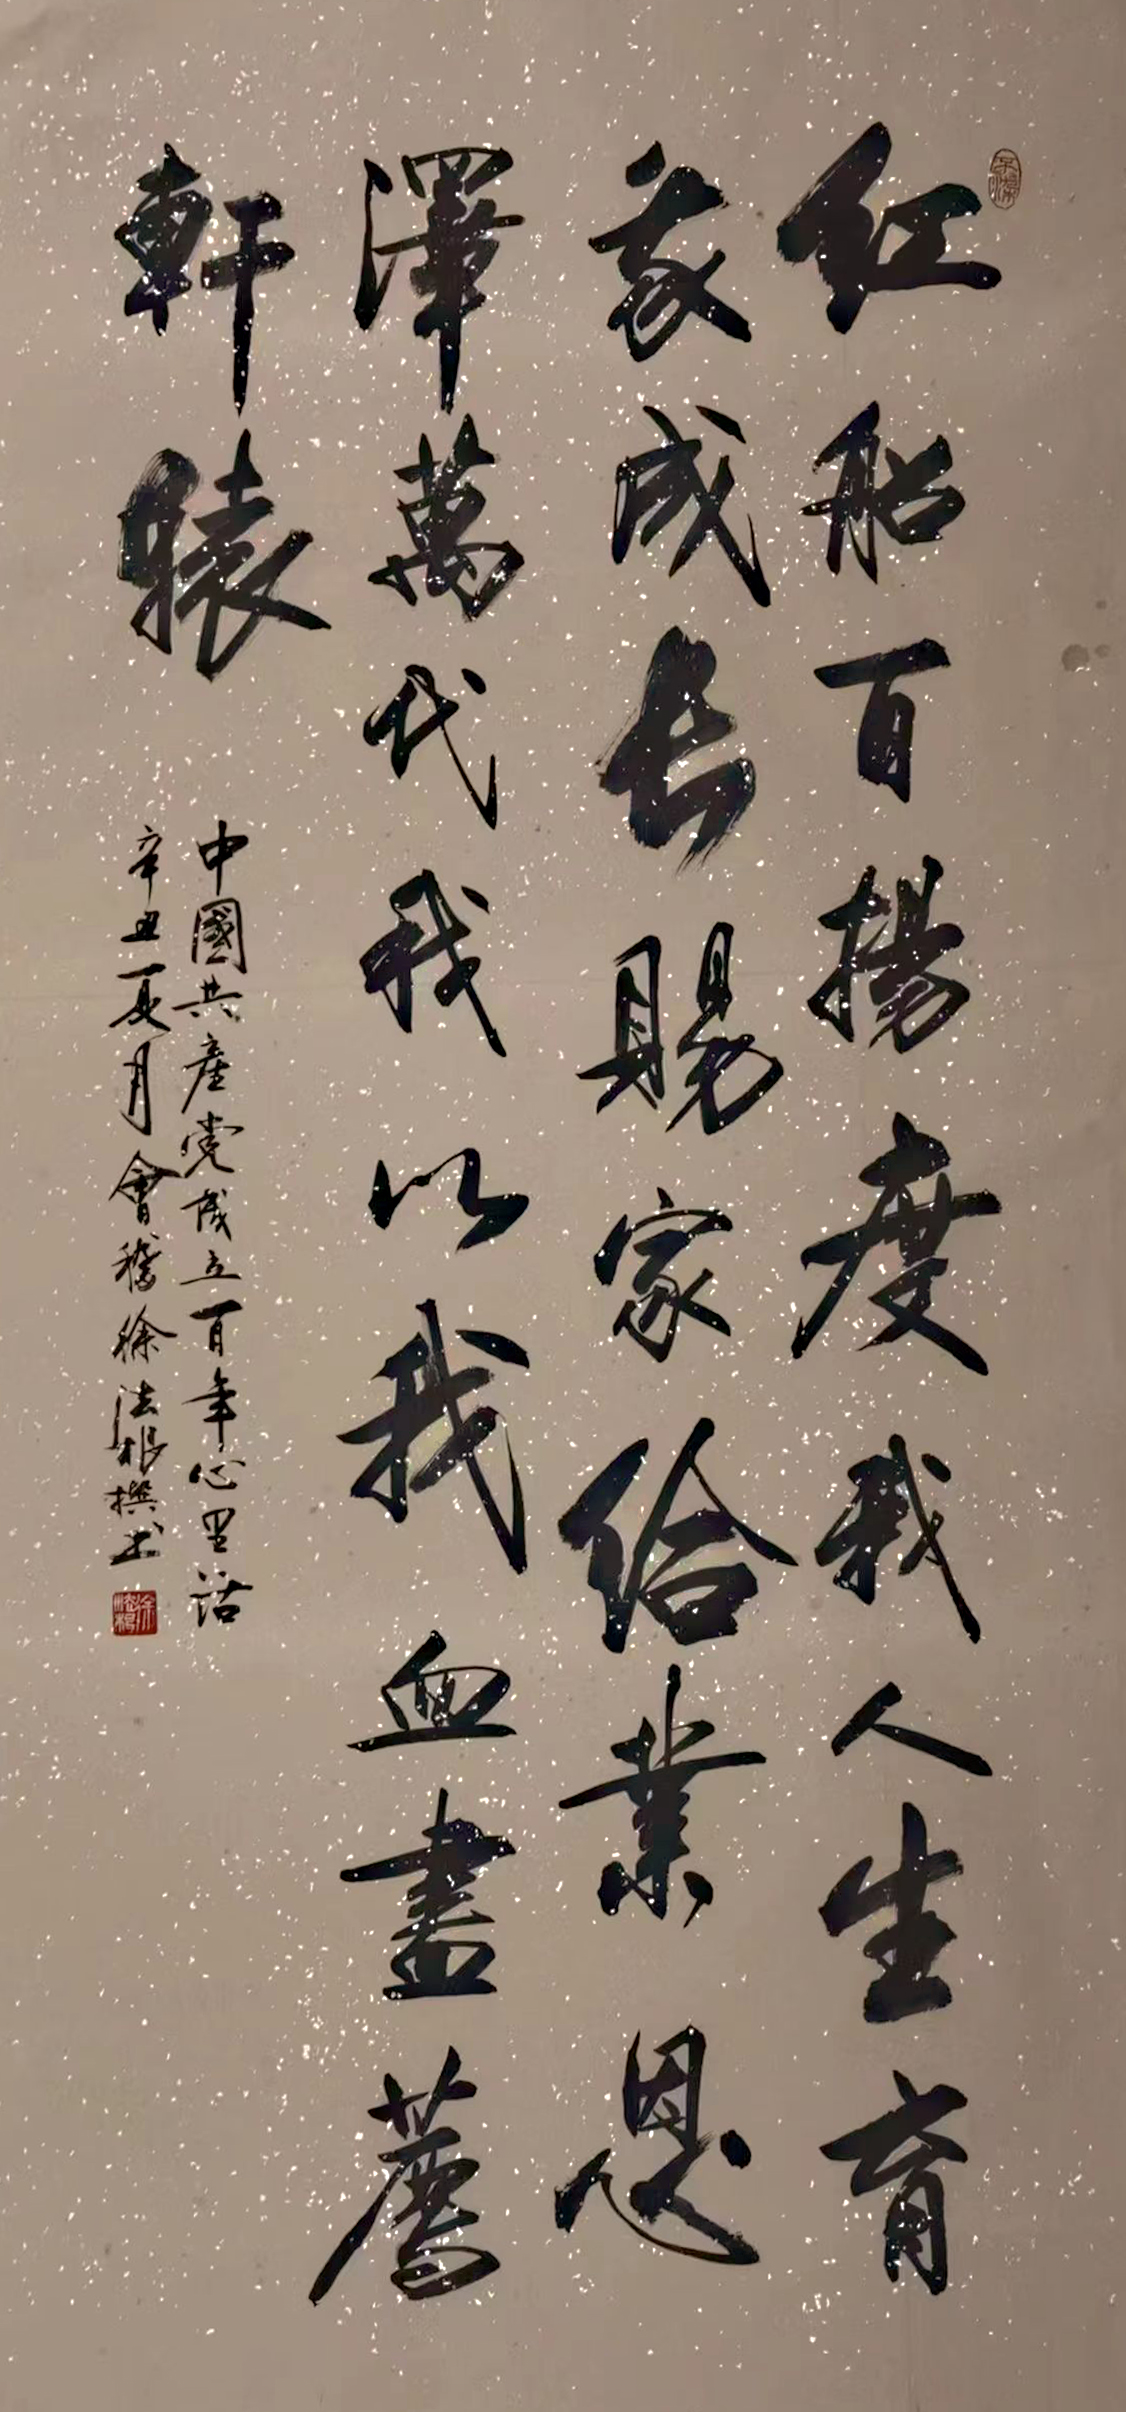 红船百揚度我人生育
我成长賜家給業恩
澤萬代我以我血盡薦
軒辕
中國共産党成立百年心里话
辛丑夏月會稽徐法根撰书